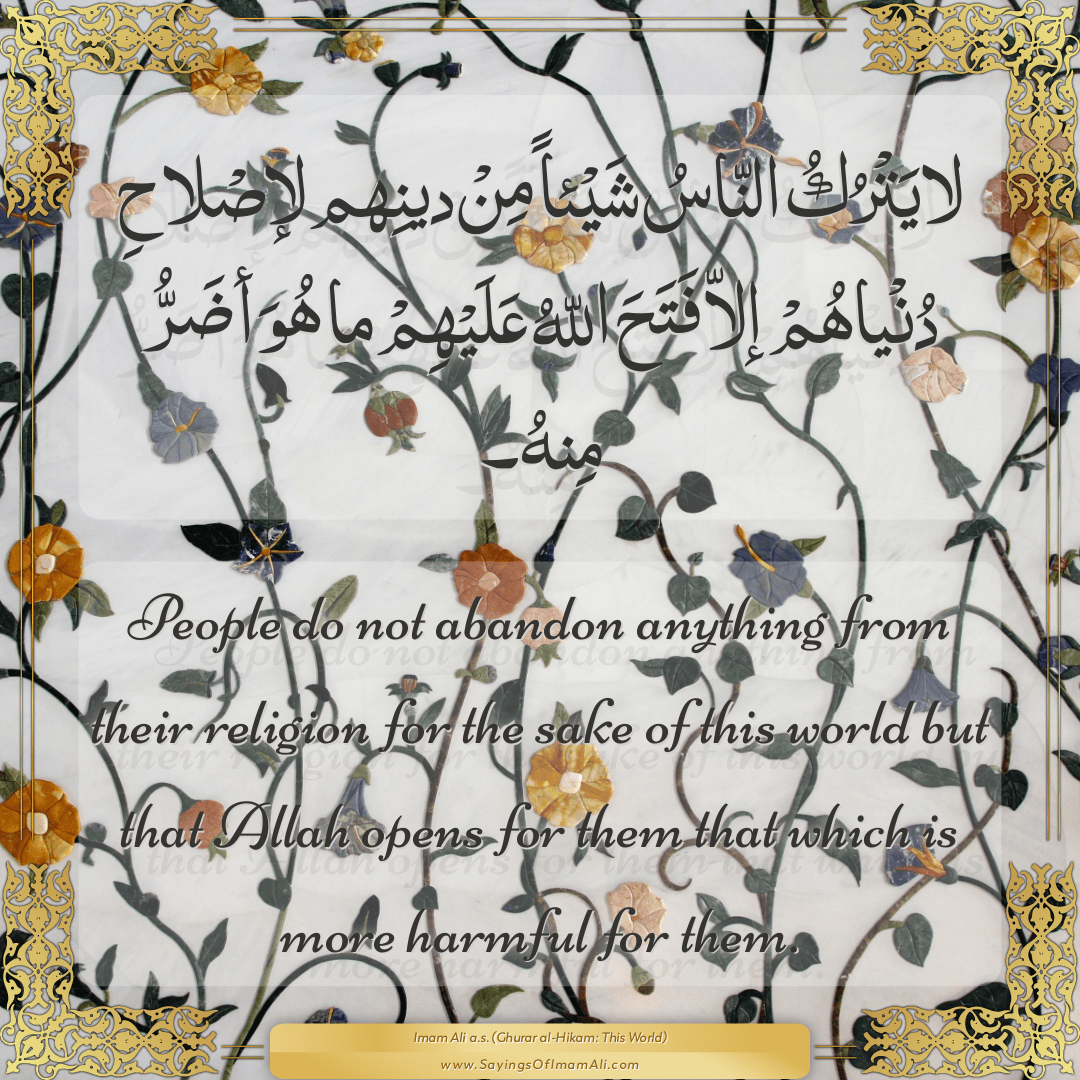 لا يَتْرُكُ النّاسُ شَيْئاً مِنْ دينِهِم لإصْلاحِ
دُنْياهُمْ إلاّ فَتَحَ اللّهُ عَلَيْهِمْ ما هُوَ أضَرُّ
مِنهُـ
People do not abandon anything from
their religion for the sake of this world but
that Allah opens for them that which is
more harmful for them.
Imam Ali a.s. (Ghurar al-Hikam: This World)
www.SayingsOfImamAli.com